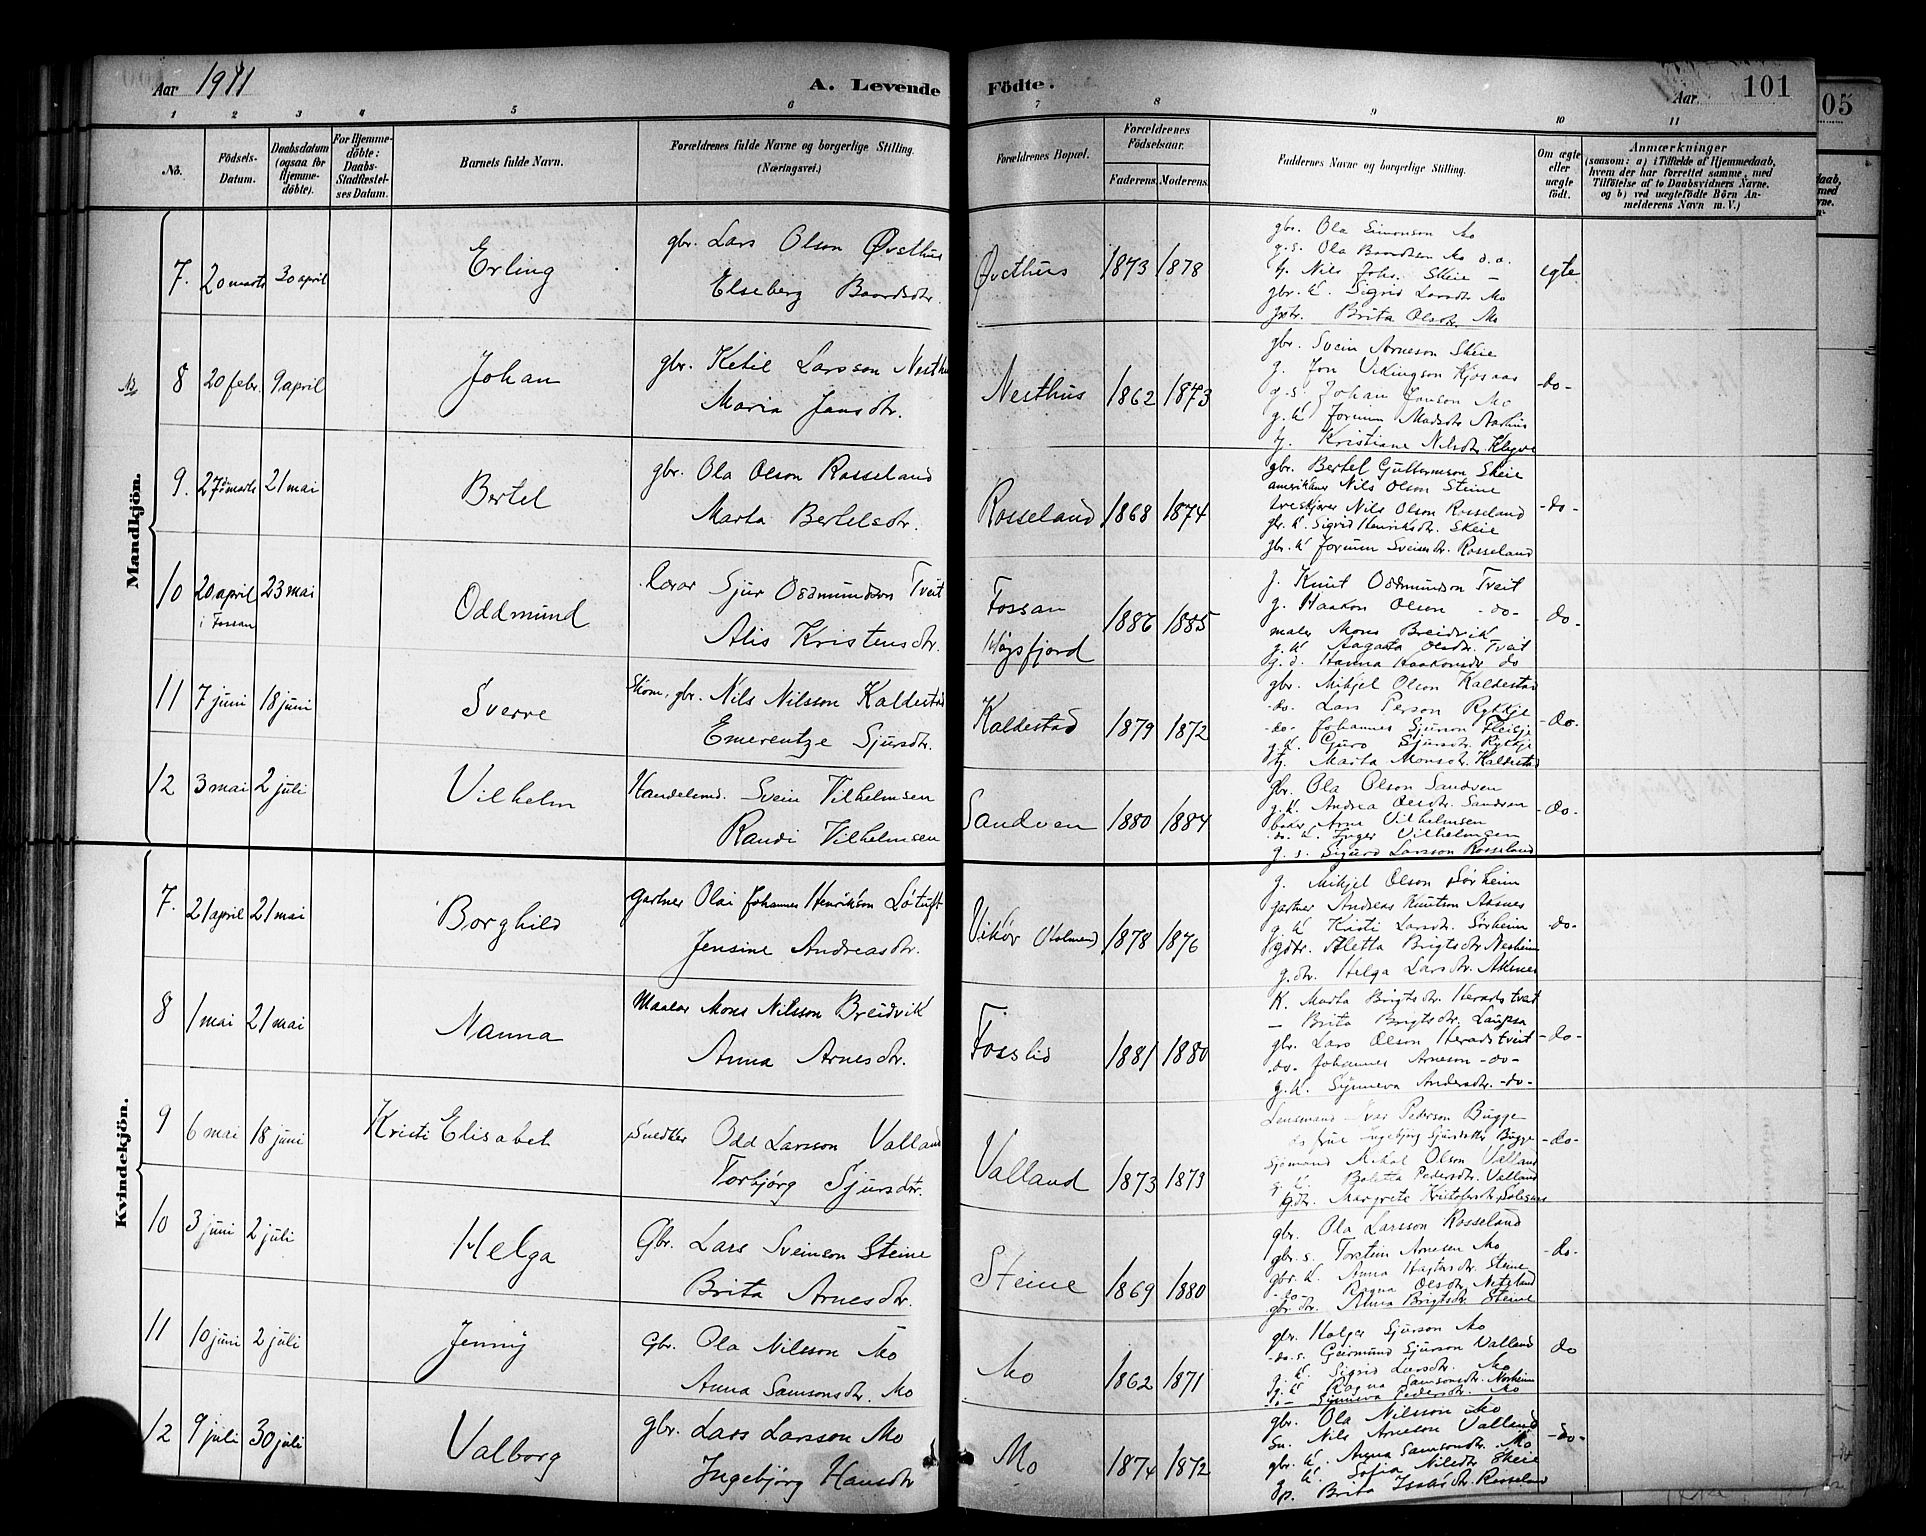 Aar 1911
A. Levende
Födte.
Aar
101
105
1 2 3 4 5 6 7 8 9 10 11
No.
Födsels-Datum.
Daabsdatum (ogsaa for Hjemme-döbte).
For Hjemme-döbte: Daabs-Stadfæstel-ses Datum.
Barnets fulde Navn.
Forældrenes fulde Navne og borgerlige Stilling. (Næringsvei.)
Forældrenes Bopæl.
Forældrenes Födselsaar.
Faderens. Moderens.
Faddernes Navne og borgerlige Stilling.
Om ægte eller uægte født.
Anmærkninger
(saasom: a) i Tilfælde af Hjemmedaab, hvem der har forrettet samme, med Tilföielse af to Daabsvidners Navne, og b) ved uægtefödte Börn An-melderens Navn m. V.)
Mandkjön.
7. 20 marts 30 april Erling
gbr. Lars Olson Øvsthus
Elseberg Baardsdtr.
Øvsthus 1873 1878
gbr. Ola Simonson Mo
g.s. Ola Baardsen Mo o.a.
tj. Nils Johs. Skeie
gbr. k. Sigrid Larsdtr Mo
Brita Olsdtr. Mo
egte
8 20 febr. 9 april Johan
gbr. Ketil Larsson Nesthus
Maria Jansdtr.
Nesthus 1862 1873
gbr. Svein Arneson Skeie
g. Jon Vikingson Kjosaas
g.s. Johan Janson Mo
g.k. Jorunn Madsdtr Aarhus
tj. Kristiane Nilsdtr. Klyve
-do-
9. 27 marts 21 mai Bertel
gbr. Ola Olson Rosseland
Marta Bertelsdtr.
Rosseland 1868 1874
gbr. Bertel Guttormson Skeie
amerikaner Nils Olson Steine
treskjærer Nils Olson Rosseland
gbr. k. Sigrid Henriksdtr. Skeie
gbr. k. Jorunn Sveinsdtr. Rosseland
-do-
10 20 april 23 mai Oddmund
i Fossan
lærar Sjur Oddmundson Tveit
Alis Kristensdtr.
Fossan
Høgsfjord
1886 1885
g. Knut Oddmundson Tveit
g. Haakon Olson -do-
maler Mons Breidvik
g.k. Aagaata Olsdtr. Tveit
g.d. Hanna Haakonsdtr do
-do-
11 7 juni 18 juni Sverre
Skom., gbr. Nils Nilsson Kaldestad
Emerentze Sjursdtr.
Kaldestad 1879 1872
gbr. Mikjel Olson Kaldestad
-do. Lars Person Rykkje
-do- Johannes Sjurson Fleisje
g.k. Guro Sjursdtr. Rykkje
tj. Marta Monsdtr. Kaldestad
-do-
12 3 mai 2 juli Vilhelm
Handelsmd. Svein Vilhelmsen
Randi Vilhelmsen
Sandven 1880 1884
gbr. Ola Olson Sandven
g.k. Andrea Olsdtr. Sandven
baker Arne Vilhelmsen
do. k. Inger Vilhelmsen
g.s. Sigurd Larsson Rosseland
-do-
Kvindekjön.
7. 21 april 21 mai Borghild
gartner Olai Johannes Henrikson Løtuft
Jensine Andreasdtr.
Vikør 1878 1876
g. Mikjel Olson Sørheim
gartner Andreas Knutson Aksnes
g.k. Kristi Larsdtr. Sørheim
Aletta Brigtsdtr. Nesheim
g.dtr. Helga Larsdtr. Aksnes
-do-
8 1 mai 21 mai Nanna
Maalar Mons Nilsson Breidvik
Anna Arnesdtr.
Fosslid 1881 1880
K. Marta Brigtsdtr. Heradstveit
- Brita Brigtsdtr.
gbr. Lars Olson Heradstveit
-do- Johannes Arneson -do-
g.k. Synneva Andersdtr. -do-
-do-
9 6 mai 18 juni Kristi Elisabet
Snedker Odd Larsson Valland
Torbjørg Sjursdtr.
Valland 1873 1873
Lensmand Ivar Pederson Bugge
do frue Ingebjørg Sjursdatter Bugge
Sjømand Mikal Olson Valland
g.k. Boletta Pedersdtr. Valland
Margrete
-do-
10 3 juni 2 juli Helga
Gbr. Lars Sveinson Steine
Brita Arnesdtr.
Steine 1869 1880
gbr. Ola Larsson Rosseland
gbr. s. Torstein Arnesen Mo
gbr. k. Anna Steine
-do- Ragna Olsdtr.
gbr. dtr. Anna Brigtsdtr Steine
-do-
11 10 juni 2 juli Jenny
Gbr. Ola Nilsson Mo
Anna Samsonsdtr. Mo
Mo 1862 1871
gbr. Holger Sjurson Mo
-do. s. Geirmund Sjurson Valland
g.k. Sigrid Larsdtr. Mo
g.k. Ragna Samsonsdtr. Norheim
-"- Synneva Pedersdtr. Mo
do
12 9 juli 30 juli Valborg
gbr. Lars Larsson Mo
Ingebjørg Hansdtr
Mo 1874 1872
gbr. Ola Nilsson Mo
Sn. Nils Arneson Valland
gbr. k. Anna Samsonsdtr. Mo
k. Sofia Nilsdtr. Skeie
p. Brita Isaksdtr. Rosseland
-do-